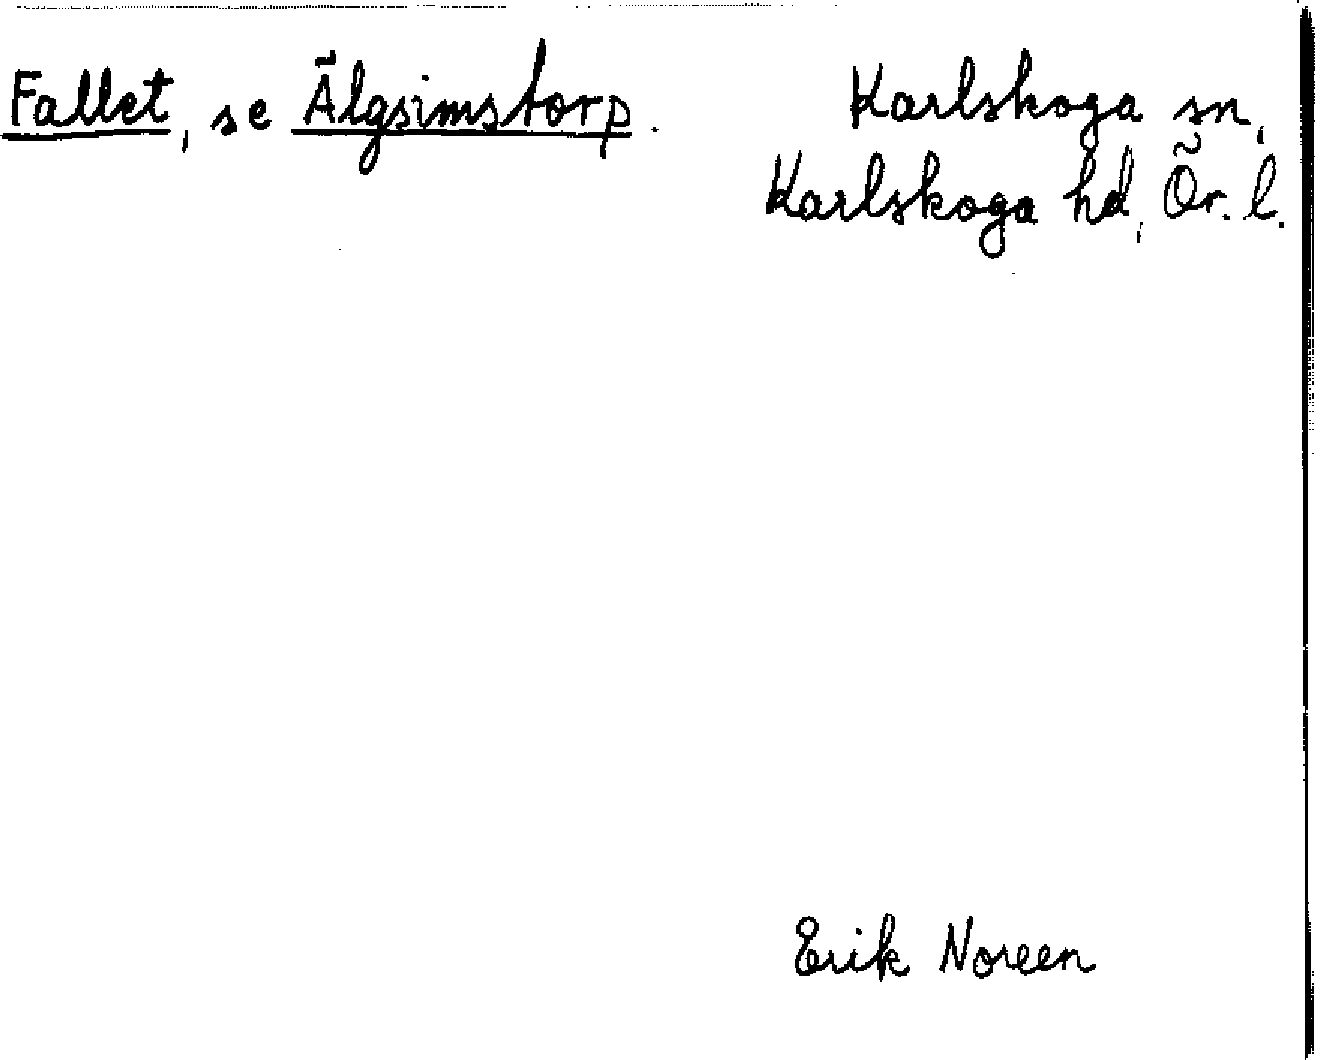 Fallet, se Älgsimstorp. Karlskoga sn,
Karlskoga hd, Ör. l.
Erik Noreen